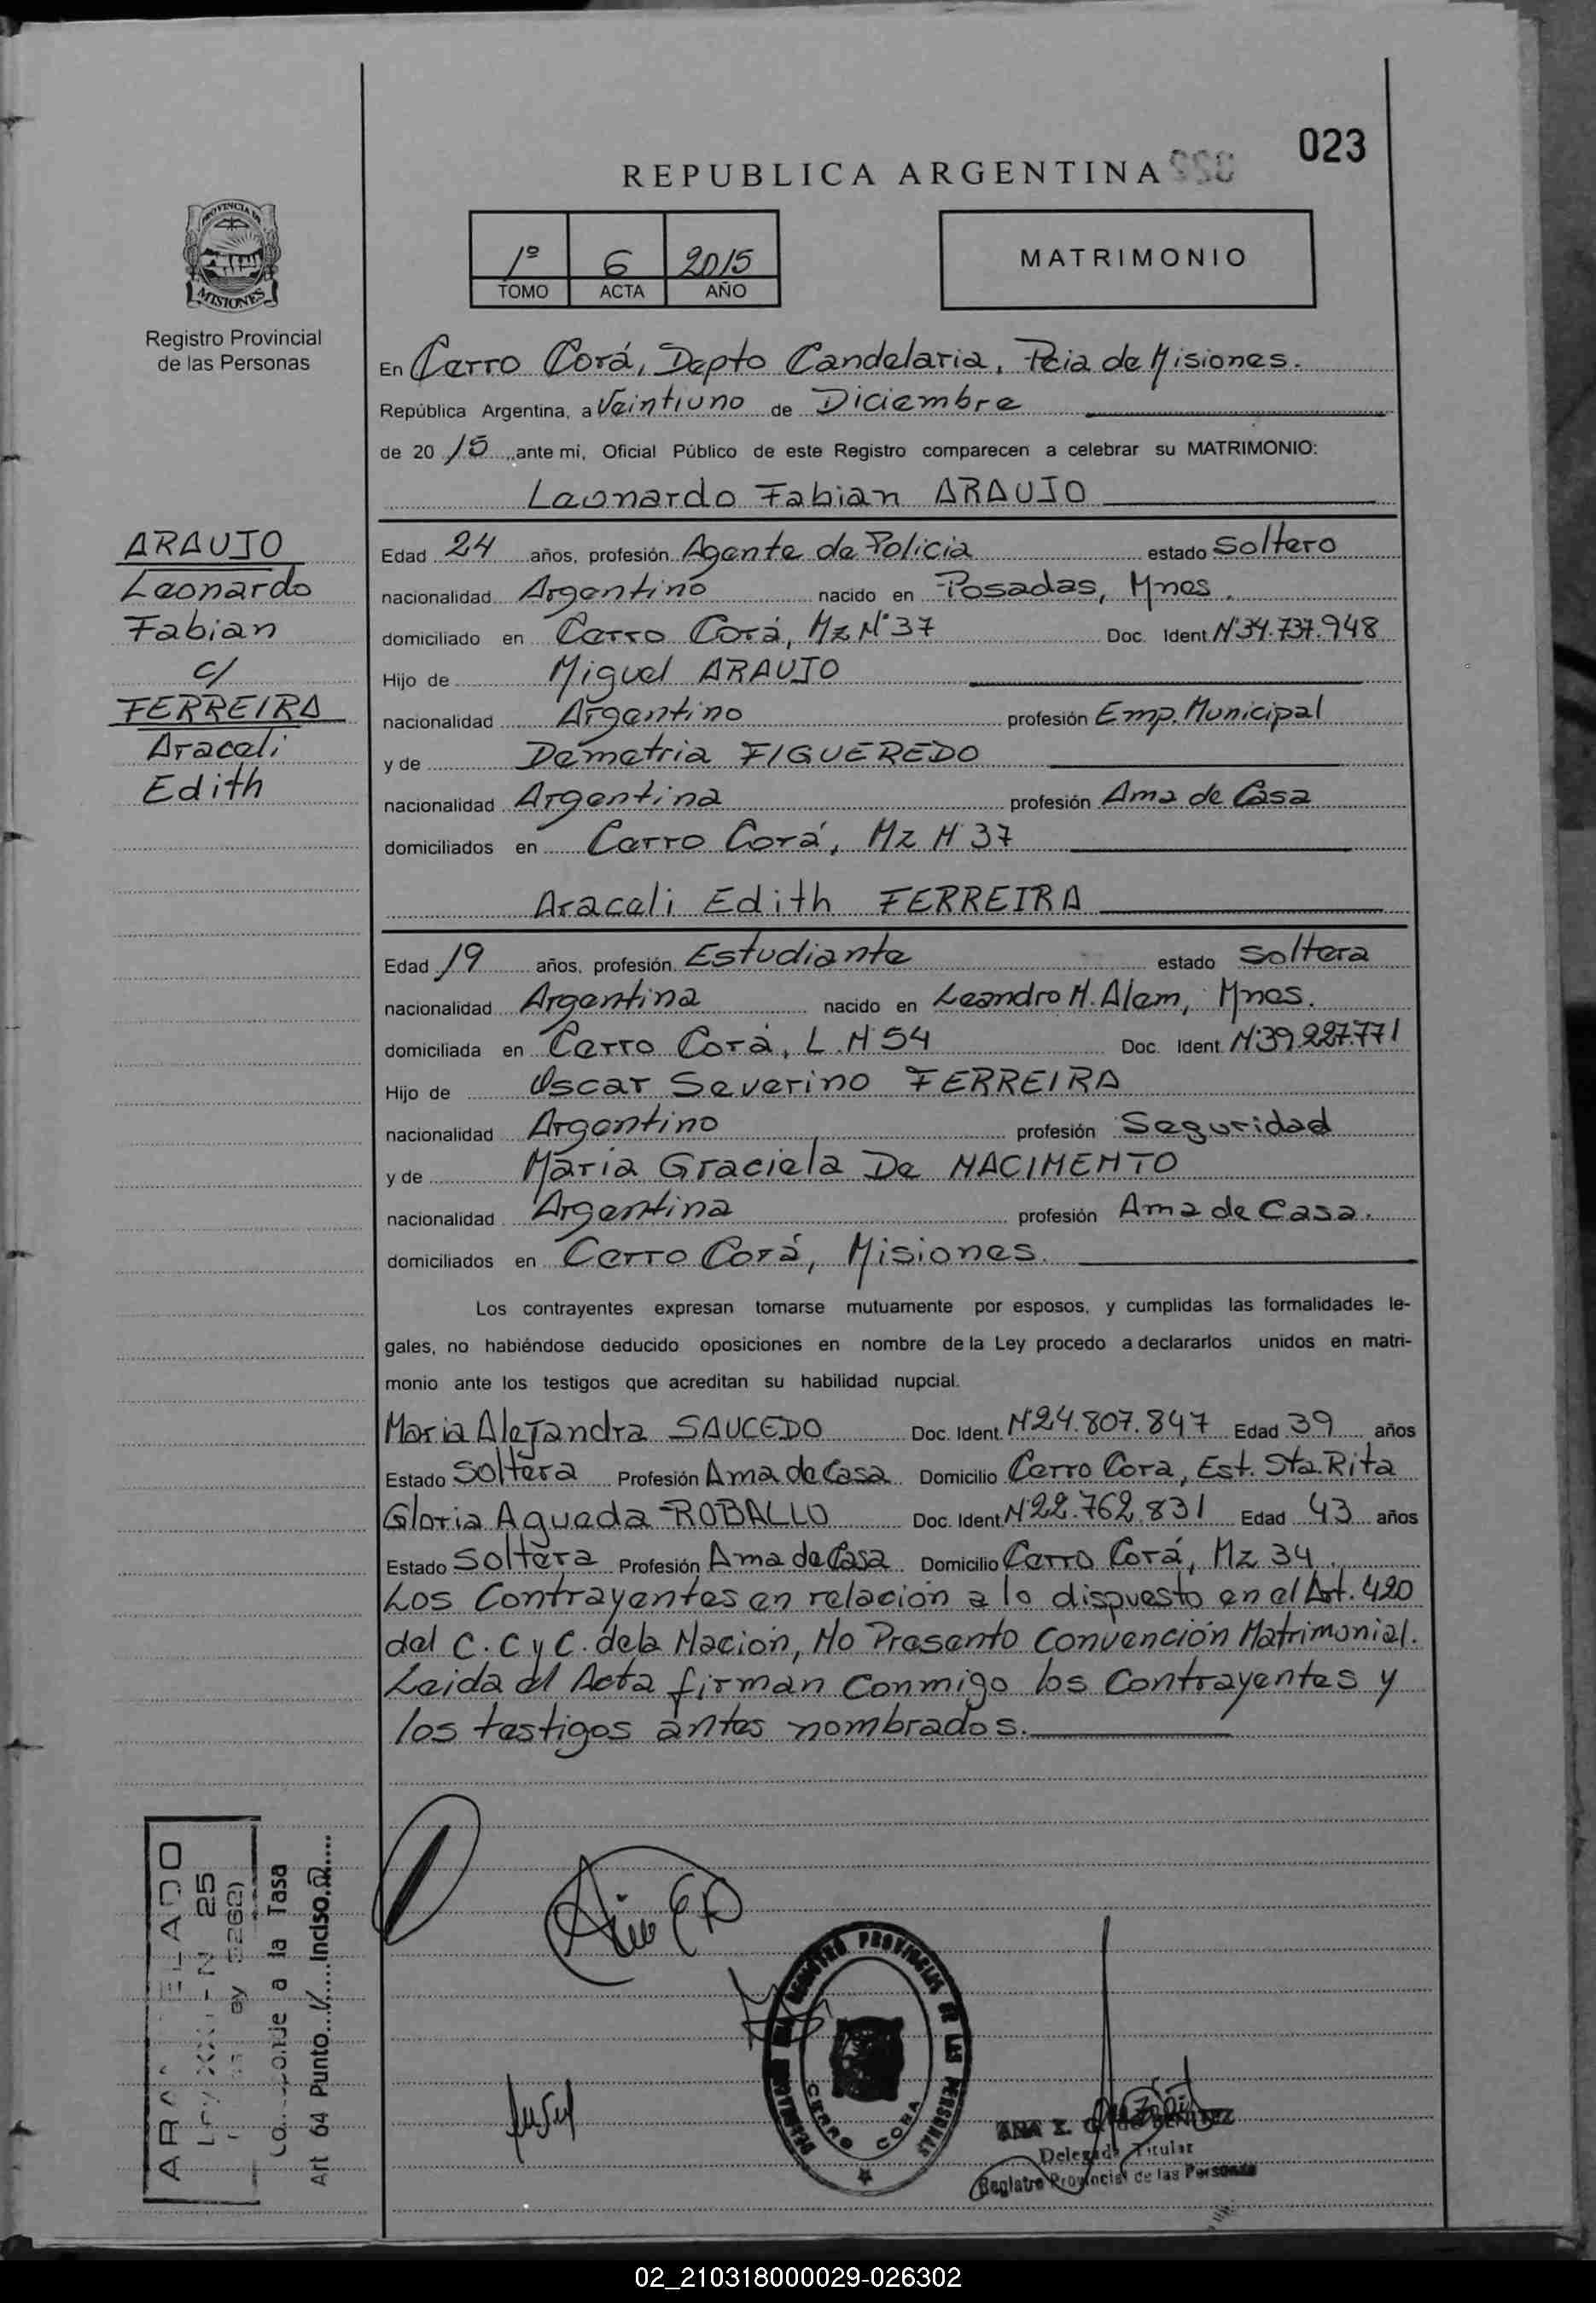 023
REPUBLICA ARGENTINA
PROVINCIA DE
MISIONES
Registro Provincial
de las Personas
1º 6 2015
TOMO ACTA AÑO
MATRIMONIO
En Cerro Corá, Depto Candelaria, Pcia de Misiones.
República Argentina, a Veintiuno de Diciembre
de 20 15 ante mi, Oficial Público de este Registro comparecen a celebrar su MATRIMONIO:
Leonardo Fabian ARAUJO
ARAUJO
Leonardo
Fabian
c/
FERREIRA
Araceli
Edith
Edad 24 años, profesión Agente de Policia estado Soltero
nacionalidad Argentino nacido en Posadas, Mnes.
domiciliado en Cerro Corá, Mz Nº 37 Doc. Ident Nº34.737.948
Hijo de Miguel ARAUJO
nacionalidad Argentino profesión Emp. Municipal
y de Demetria FIGUEREDO
nacionalidad Argentina profesión Ama de Casa
domiciliados en Cerro Corá, Mz N 37
Araceli Edith FERREIRA
Edad 19 años, profesión Estudiante estado Soltera
nacionalidad Argentina nacido en Leandro N. Alem, Mnes.
domiciliada en Cerro Corá, L. N 54 Doc. Ident N°39.227.771
Hijo de Oscar Severino FERREIRA
nacionalidad Argentino profesión Seguridad
y de Maria Graciela De NACIMENTO
nacionalidad Argentina profesión Ama de Casa.
domiciliados en Cerro Corá, Misiones.
Los contrayentes expresan tomarse mutuamente por esposos, y cumplidas las formalidades le-
gales, no habiéndose deducido oposiciones en nombre de la Ley procedo a declararlos unidos en matri-
monio ante los testigos que acreditan su habilidad nupcial.
Maria Alejandra SAUCEDO Doc. Ident. N°24.807.847 Edad 39 años
Estado Soltera Profesión Ama de Casa Domicilio Cerro Cora, Est. Sta. Rita
Gloria Agueda ROBALLO Doc. Ident. N°22.762.831 Edad 43 años
Estado Soltera Profesión Ama de Casa Domicilio Cerro Corá, Mz 34.
Los Contrayentes en relación a lo dispuesto en el Art. 420
del C. C y C. de la Nación, No Presento Convención Matrimonial.
Leida el Acta firman Conmigo los Contrayentes y
los testigos antes nombrados.
25
a la Tasa
Art 64 Punto Inciso
REGISTRO PROVINCIAL DE LAS PERSONAS
CERRO CORA
ANA BENITEZ
Delegada Titular
Registro Provincial de las Personas
02_210318000029-026302